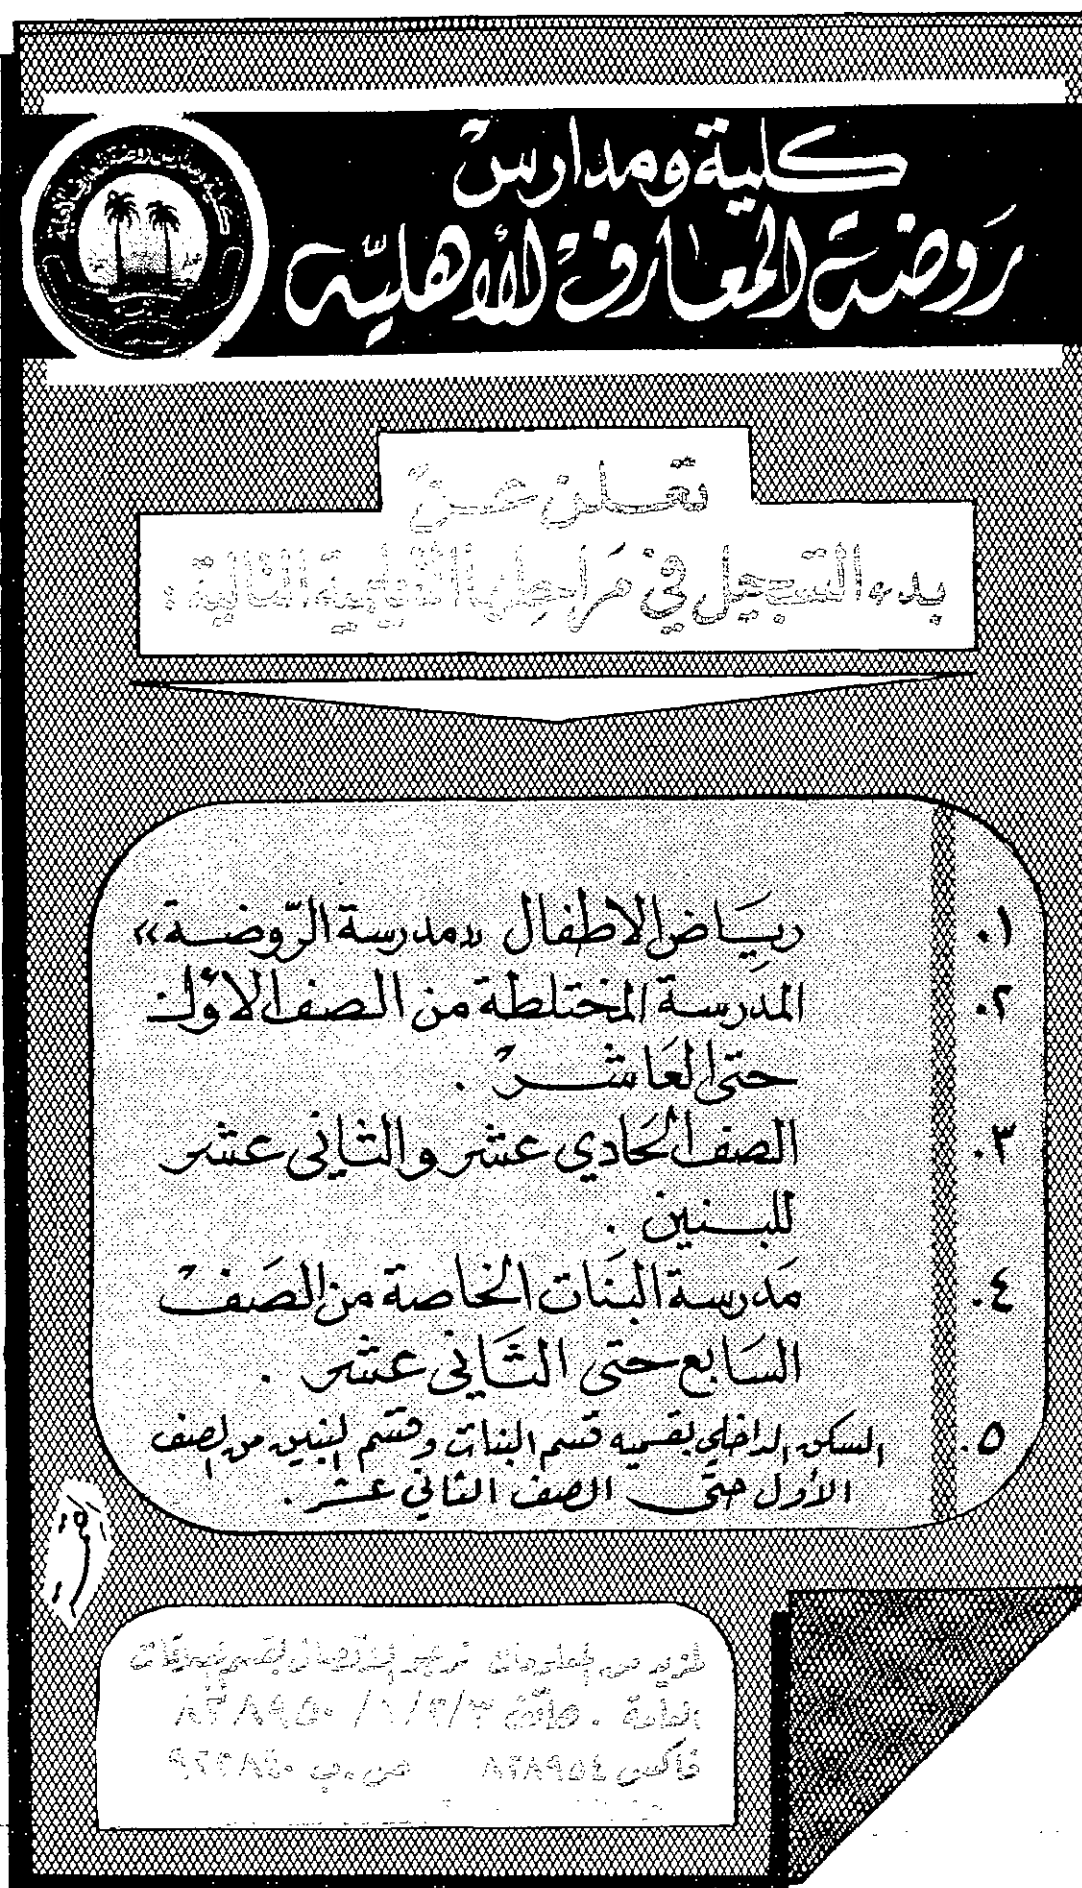 كلية ومدارس
روضة المعارف الأهلية
تعلن عن
بدء التسجيل في مراحلها التالية :
١. رياض الاطفال «مدرسة الروضة»
٢. المدرسة المختلطة من الصف الاول
حتى العاشر .
٣. الصف الحادي عشر والثاني عشر
للبنين .
٤. مدرسة البنات الخاصة من الصف
السابع حتى الثاني عشر .
٥. السكن الداخلي بقسميه قسم البنات وقسم البنين من الصف
الأول حتى الصف الثاني عشر .
لمزيد من المعلومات نرجو الاتصال بقسم العلاقات
العامة . هاتف ٨٣٨٩٥٠ /١/٢/٣
فاكس ٨٣٨٩٥٤ ص.ب